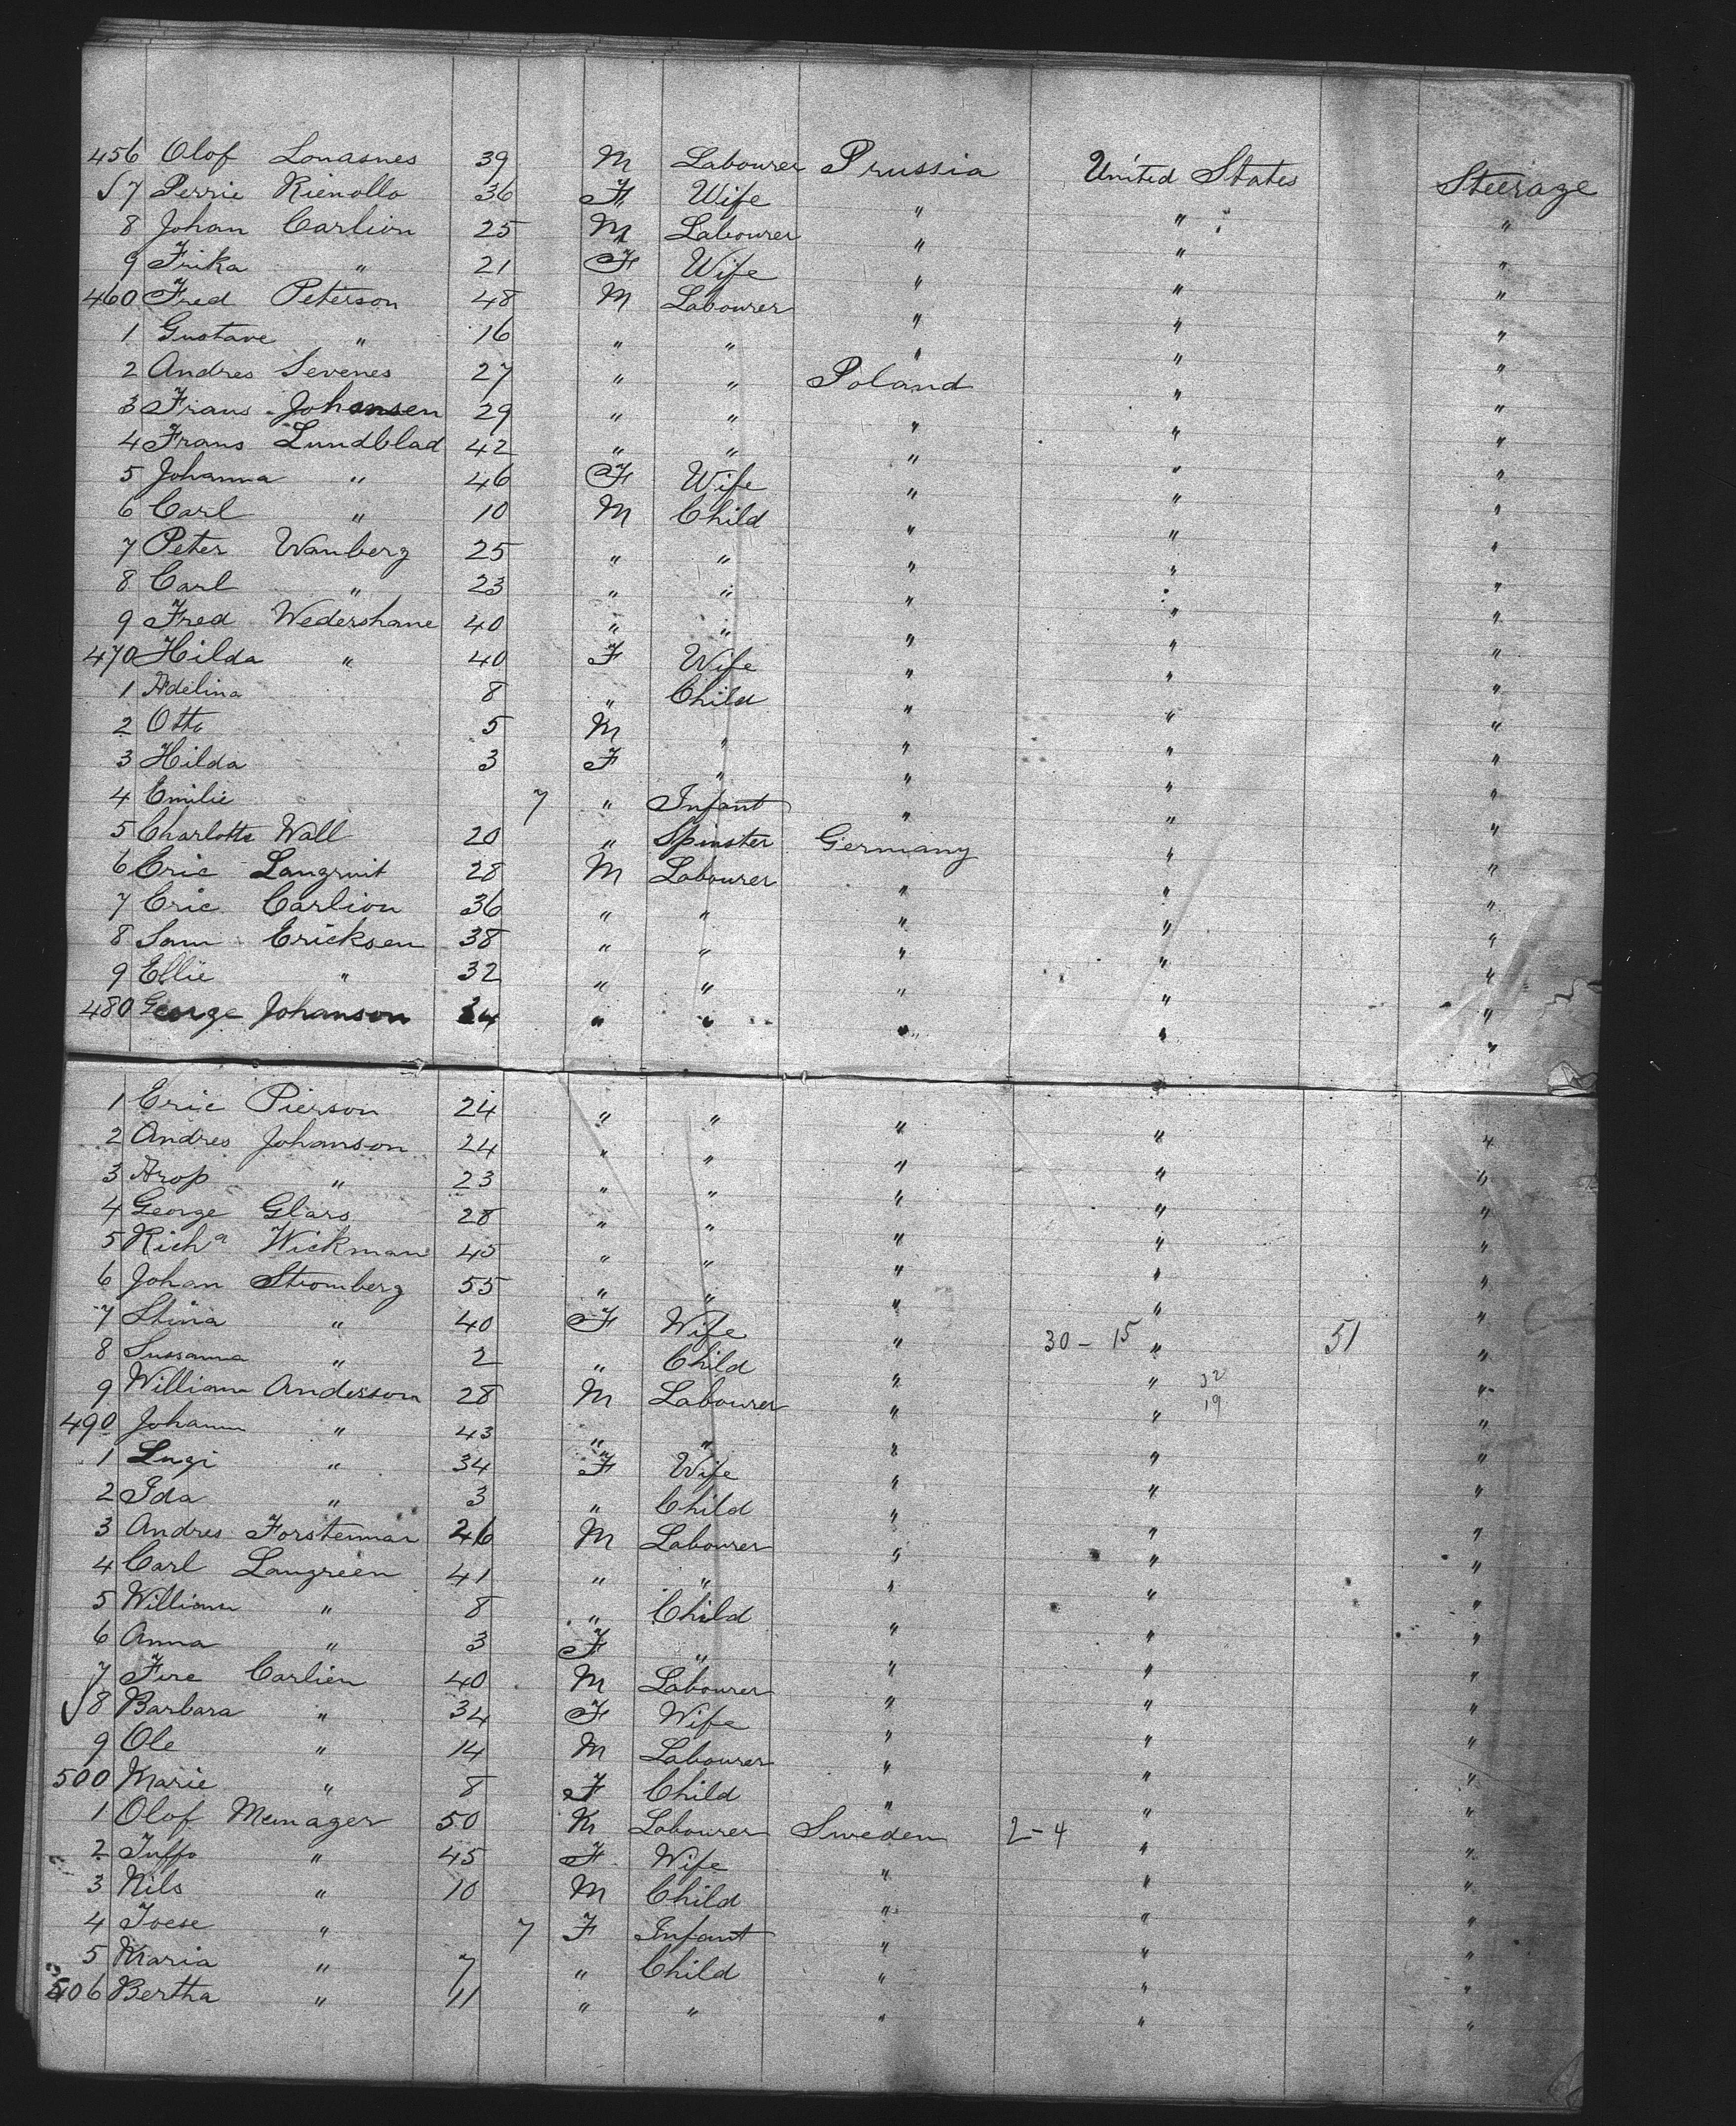 456 Olof Lonasnes 39 M Labourer Prussia United States Steerage
7 Perrie Rienollo 36 F Wife " " "
8 Johan Carlion 25 M Labourer " " "
9 Frika " 21 F Wife " " "
460 Fred Peterson 48 M Labourer " " "
1 Gustave " 16 " " " " "
2 Andres Sevenes 27 " " Poland " "
3 Frans Johansen 29 " " " " "
4 Frans Lundblad 42 " " " " "
5 Johanna " 46 F Wife " " "
6 Carl " 10 M Child " " "
7 Peter Wanberg 25 " " " " "
8 Carl " 23 " " " " "
9 Fred Wedershane 40 " " " " "
470 Hilda " 40 F Wife " " "
1 Adelina 8 " Child " " "
2 Otto 5 M " " " "
3 Hilda 3 F " " " "
4 Emilie 7 " Infant " " "
5 Charlotte Wall 20 " Spinster Germany " "
6 Eric Langruit 28 M Labourer " " "
7 Eric Carlion 36 " " " " "
8 Sam Ericksen 38 " " " " "
9 Ellie " 32 " " " " "
480 George Johanson 24 " " " " "
1 Eric Pierson 24 " " " " "
2 Andres Johanson 24 " " " " "
3 Arop " 23 " " " " "
4 George Glars 28 " " " " "
5 Richd Wickman 45 " " " " "
6 Johan Stromberg 55 " " " " "
7 Stina " 40 F Wife " 30-15 " 51 "
8 Sussanna " 2 " Child " " "
9 William Anderson 28 M Labourer " " 19 "
490 Johann " 43 " " " " "
1 Lugi " 34 F Wife " " "
2 Ida " 3 " Child " " "
3 Andres Forstenmar 26 M Labourer " " "
4 Carl Langreen 41 " " " " "
5 William " 8 " Child " " "
6 Anna " 3 F " " " "
7 Fire Carlien 40 M Labourer " " "
8 Barbara " 34 F Wife " " "
9 Ole " 14 M Labourer " " "
500 Marie " 8 F Child " " "
1 Olof Menager 50 M Labourer Sweden 2-4 " "
2 Tuffo " 45 F Wife " " "
3 Nils " 10 M Child " " "
4 Joese " 7 F Infant " " "
5 Maria " 7 " Child " " "
506 Bertha " 11 " " " " "